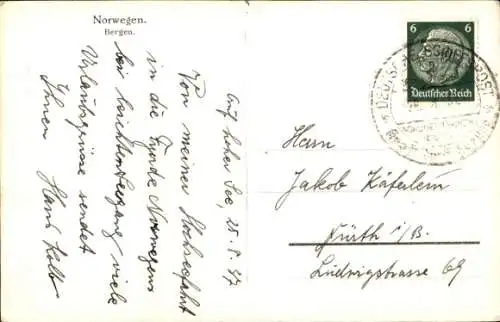 Norwegen.
Bergen.
Auf hoher See, 25.8.37
Von meiner Hochseefahrt
in die Fjorde Norwegens
bei leichtem Seegang viele
Urlaubsgrüsse sendet
Ihnen Hans Kolb
6 6
Deutsches Reich
DEUTSCHE SCHIFFSPOST
Herrn
Jakob Käferlein
Fürth i/B.
Ludwigstrasse 69